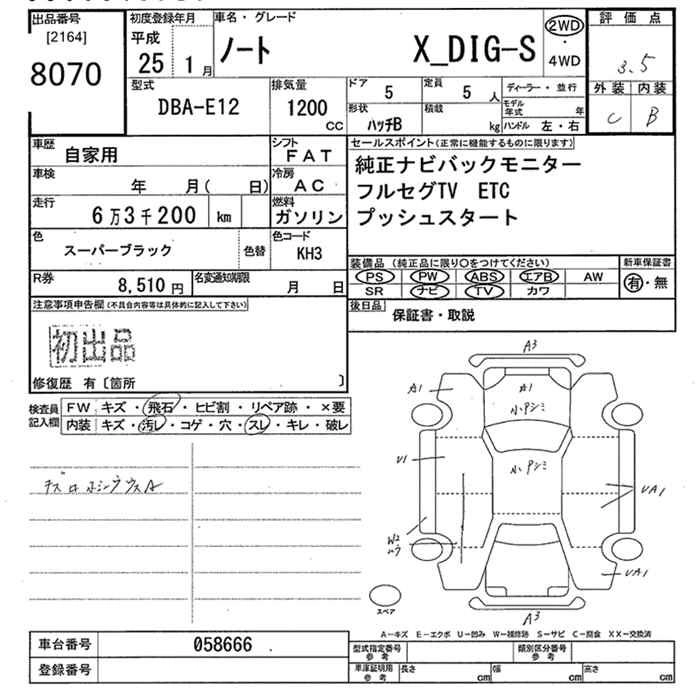 出品番号
[2164]
8070
初度登録年月
平成
25 1 月
車名・グレード
ノート X_DIG-S
2WD
・
4WD
評価点
3.5
外装 内装
C B
型式
DBA-E12
排気量
1200 CC
ドア
5
定員
5 人
ディーラー・並行
形状
ハッチB
積載
kg
モデル年式 年
ハンドル 左・右
車歴
自家用
シフト
FAT
車検
年 月( 日)
冷房
AC
走行
6万3千200 km
燃料
ガソリン
色
スーパーブラック
色替
色コード
KH3
R券
8,510 円
名変通知期限
月 日
セールスポイント(正常に機能するものに限ります)
純正ナビバックモニター
フルセグTV ETC
プッシュスタート
装備品 (純正品に限り○をつけてください)
PS PW ABS エアB AW
SR ナビ TV カワ
新車保証書
有・無
後日品
保証書・取説
注意事項申告欄(不具合内容等は具体的に記入して下さい)
初出品
修復歴 有〔箇所 〕
検査員記入欄
FW キズ・飛石・ヒビ割・リペア跡・×要
内装 キズ・汚レ・コゲ・穴・スレ・キレ・破レ
A3
A1
A1
小Pシミ
U1
小Pシミ
UA1
W2
UA1
A3
スペア
A-キズ E-エクボ U-凹み W-補修跡 S-サビ C-腐食 XX-交換済
車台番号
058666
登録番号
型式指定番号
参考
類別区分番号
参考
車庫証明用
参考
長さ cm
幅 cm
高さ cm